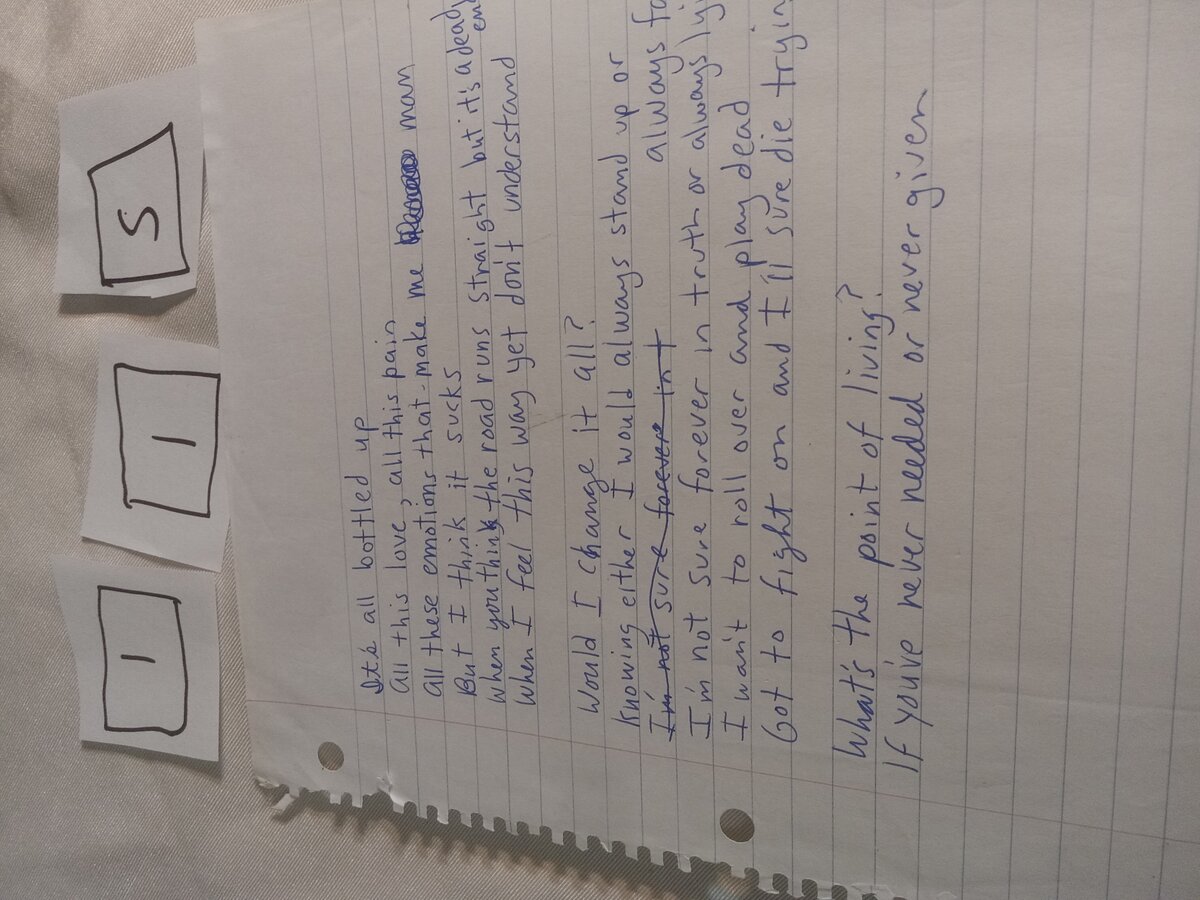 1 1 5
It's all bottled up
All this love, all this pain
All these emotions that make me man
But I think it sucks
When you think the road runs straight but it's a dead end
When I feel this way yet don't understand
Would I change it all?
Knowing either I would always stand up or
always fa
I'm not sure forever in t
I'm not sure forever in truth or always lyi
I wan't to roll over and play dead
Got to fight on and I'll sure die tryin
What's the point of living?
If you've never needed or never given